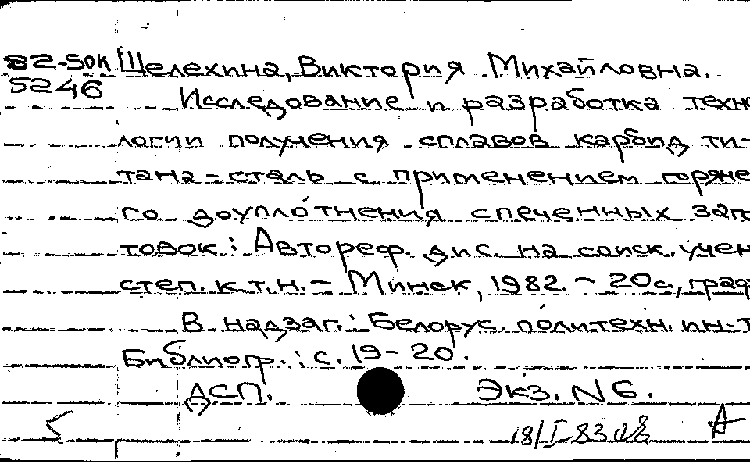 82-5ОК Щелехина, Виктория Михайловна.
5246 Исследование и разработка техно
логии получения сплавов карбид ти-
тана-сталь с применением горяче
го доуплотнения спеченных заго
товок: Автореф. дис. на соиск. учен
степ. к.т.н. - Минск, 1982. - 20с., граф
В надзаг.: Белорус. политехн. ин-т
Библиогр.: с. 19-20.
ДСП. Экз. N6.
18/I-83